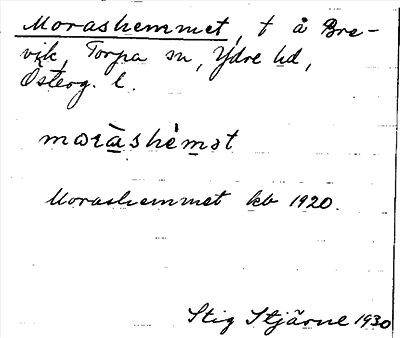 Morashemmet, t å Bre-
vik, Torpa sn, Ydre hd,
Österg. l.
moràshèmət
Morashemmet kb 1920.
Stig Stjärne 1930